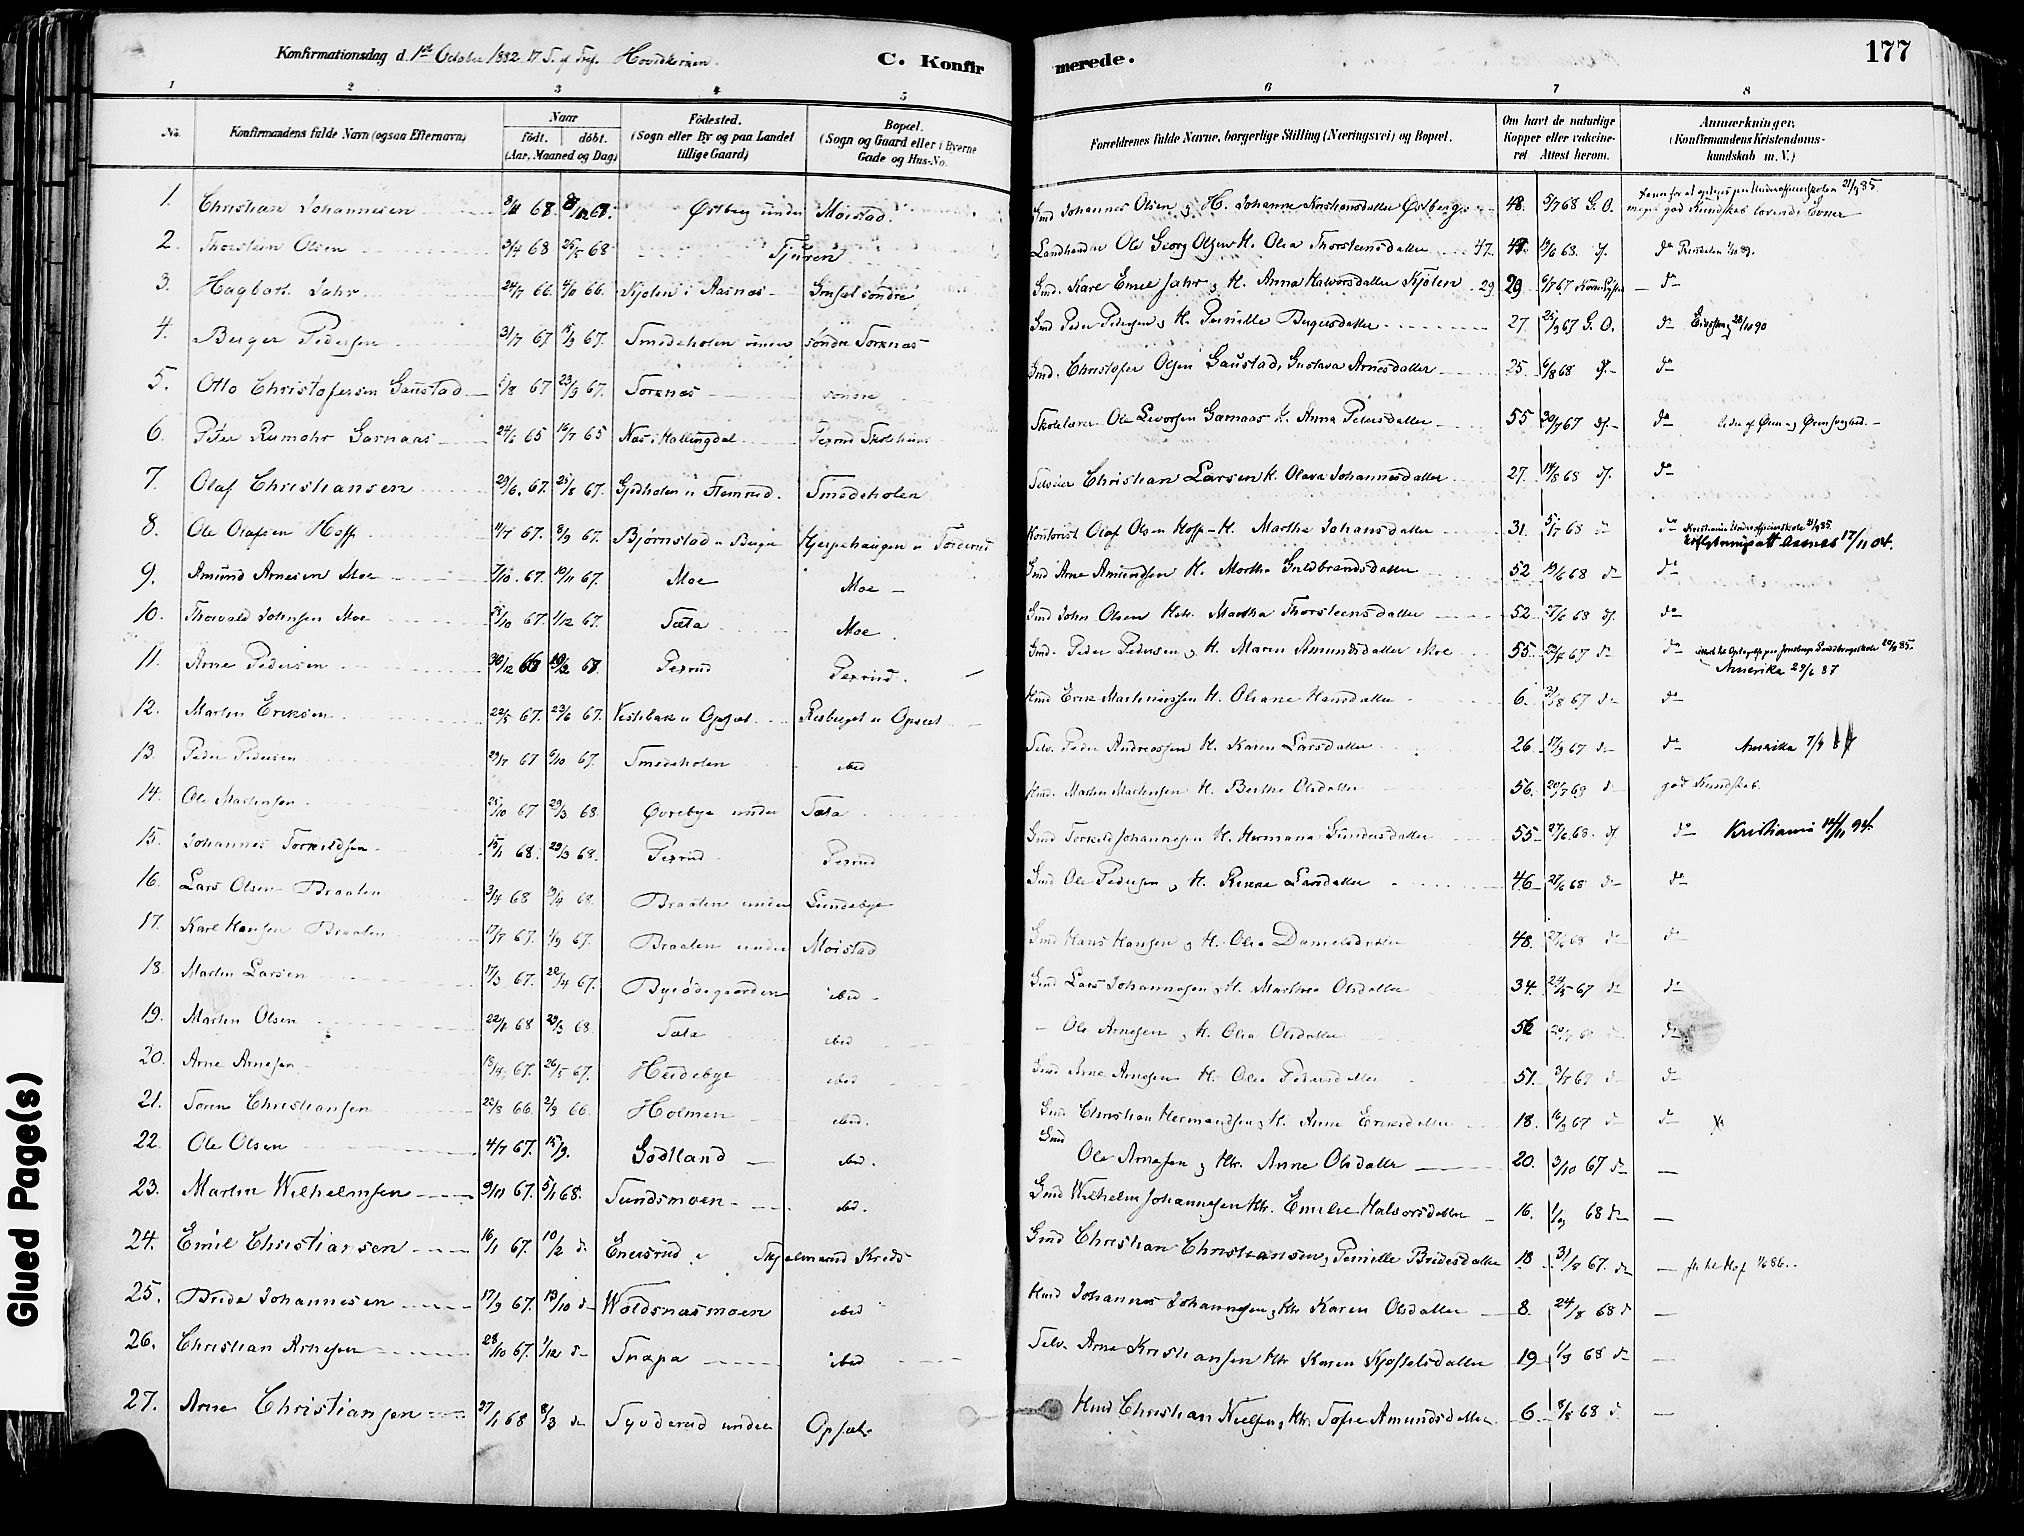 Konfirmationsdag d. 1st October 1882 17 S. ef Tref. Hovedkirken.
C. Konfirmerede.
177
1 2 3 4 5 6 7 8
No.
Konfirmandens fulde Navn (ogsaa Efternavn)
Naar
født. døbt.
(Aar, Maaned og Dag)
Fødested.
(Sogn eller By og paa Landet tillige Gaard)
Bopæl.
(Sogn og Gaard eller i Byerne Gade og Hus-No.
Forældrenes fulde Navne, borgerlige Stilling (Næringsvei) og Bopæl.
Om havt de naturlige Kopper eller vakcineret Attest herom.
Anmærkninger.
(Konfirmandens Kristendomskundskab m. V.)
1. Christian Johannesen 68 Østberg under Moistad. Gmd Johannes Olsen og H. Johanne Østberg 48. 5/7 68 G. O. meget god Kundskab
2. Thorstein Olsen 3/4 68 25/5 68 Tjuren Landhandler Ole Georg Olsen H. Olea Thorsteensdatter 47. 68 do
3. Hagbart Jahr 24/7 66 66. Kjølen i Aasnes Grafset søndre Gmd. Karl Emil Jahr og H. Anna Halvorsdatter Kjølen 29 29 6/7 67 do
4. Berger Pedersen 3/7 67 67. Smedeholen under søndre Sorknes Gmd Peder Pedersen og H. Pernille Bergersdatter 27. 25/9 67 G. O. do 28/10 90
5. Otto Christofersen Gaustad 67 23/9 67. Sorknes søndre Gmd. Christofer Olsen Gaustad, Gustava Arnesdatter 25. 6/8 68 do
6. Peter Rumohr Garnaas 24/6 65 16/7 65 Næs i Hallingdal Perrud Skolehuus Skolelærer Ole Levorsen Garnaas H. Anna Petersdatter 55 67 do
7. Olaf Christiansen 29/6. 67. 25/8 67. Gjedholen u Flermud. Smedeholen Selveier Christian Larsen H. Olava Johannesdatter 27. 14/8 68 do
8. Ole Olafsen Hoff 11/7 67. 8/9 67. Bjørnstad u Berger Hjerpehaugen u Kontorist Olaf Olsen Hoff H. Marthe Johansdatter 31. 5/7 68 do do 21/9 85. Udflytningsatt Aasnes 17/11 04.
9. Amund Arnesen Moe 7/10. 67. 10/11 67. Moe Moe Gmd Arne Amundsen H. Marthe Guldbrandsdatter 52 19/6 68 do do
10. Thorvald Johnsen Moe 67. 1/12 67. Sæta Moe. Gmd John Olsen Hstr. Martha Thorsteensdatter 52 27/6 68 do
11. Arne Pedersen 68 Perrud Perrud. Gmd. Peder Pedersen og H. Maren Amundsdatter Moe 55. 67 do do Amerika 29/6 87
12. Martin Eriksen 22/5 67. 23/6 67. Vestebak u Opset Risberget u Opset Hmd Erik Martinussen H. Oliane Hansdatter 6. 31/8 67 do do
13. Peder Pedersen 29/7 67 6/10 67. Smedeholen ibid Selv. Peder Andreassen H. Karen Larsdatter 26. 17/9 67 do do Amerika 7/9
14. Ole Martinsen 25/10 67 29/3 68. Øvrebye under Sæta Hmd. Martin Martinsen H. Berthe Olsdatter 56. 20/7 69 do god Kundskab.
15. Johannes Torkildsen 15/1 68. 29/3 68. Perrud Perrud Gmd Torkild Johannesen H. Hermana Gundersdatter 55. 27/6 68. do Kristiania 14/11 94.
16. Lars Olsen Braaten 3/4 68 68. Braaten under Lundebye Gmd Ole Pedersen og H. Larsdatter 46 27/6 68 do do
17. Karl Hansen Braaten 17/7 67. 1/9 67. Braaten under Moistad Gmd Hans Hansen og H. Olea Danielsdatter 48. 27/6 68 do do
18. Martin Larsen 17/3 67. 22/4 67. Byeødegaarden ibid Gmd Lars Johannesen og H. Marthea Olsdatter 34. 67 do do
19. Martin Olsen 22/1 68 29/3 68 Sæta ibid Ole Arnesen og H. Olea Olsdatter 56 do
20. Arne Arnesen 13/4 67. 26/5 67. Heidebye ibid Gmd Arne Arnesen H. Olea Pedersdatter 51. 3/7 67 do do
21. Søren Christiansen 22/8 66. 2/9 66. Holmen ibid. Gmd. Christian Hermandsen og H. Anne Eriksdatter 18. 16/9 67 do do
22. Ole Olsen 4/7 67. 15/9. Godtland ibid. Gmd Ole Arnesen og Hstr. Anne Olsdatter 20. 3/10 67 do
23. Martin Wilhelmsen 9/11 67. 5/1 68. Sundsmoen ibid. Gmd Wilhelm Johannesen Hstr. Emilie Halvorsdatter 16. 1/9 68 do
24. Emil Christiansen 16/1 67. 10/2 do Enersrud i Skjelmerud Kreds Gmd Christian Christiansen, Pernille Bredesdatter 18 31/8 67. do
25. Brede Johannesen 17/9 67. 13/10 do Woldsnæsmoen ibid Hmd Johannes Johannesen og Hstr Karen Olsdatter 8. 24/8 68 do
26. Christian Arnesen 28/10 67. 1/12 do Snapa ibid Selv. Arne Kristiansen Hstr Karen Kjostelsdatter 19 1/9 68 do
27. Arne Christiansen 27/1 68 8/3 do Syverud under Opset Hmd Christian Nielsen, Hstr. Sofie Amundsdatter 6 8/8 68 do
Glued Page(s)